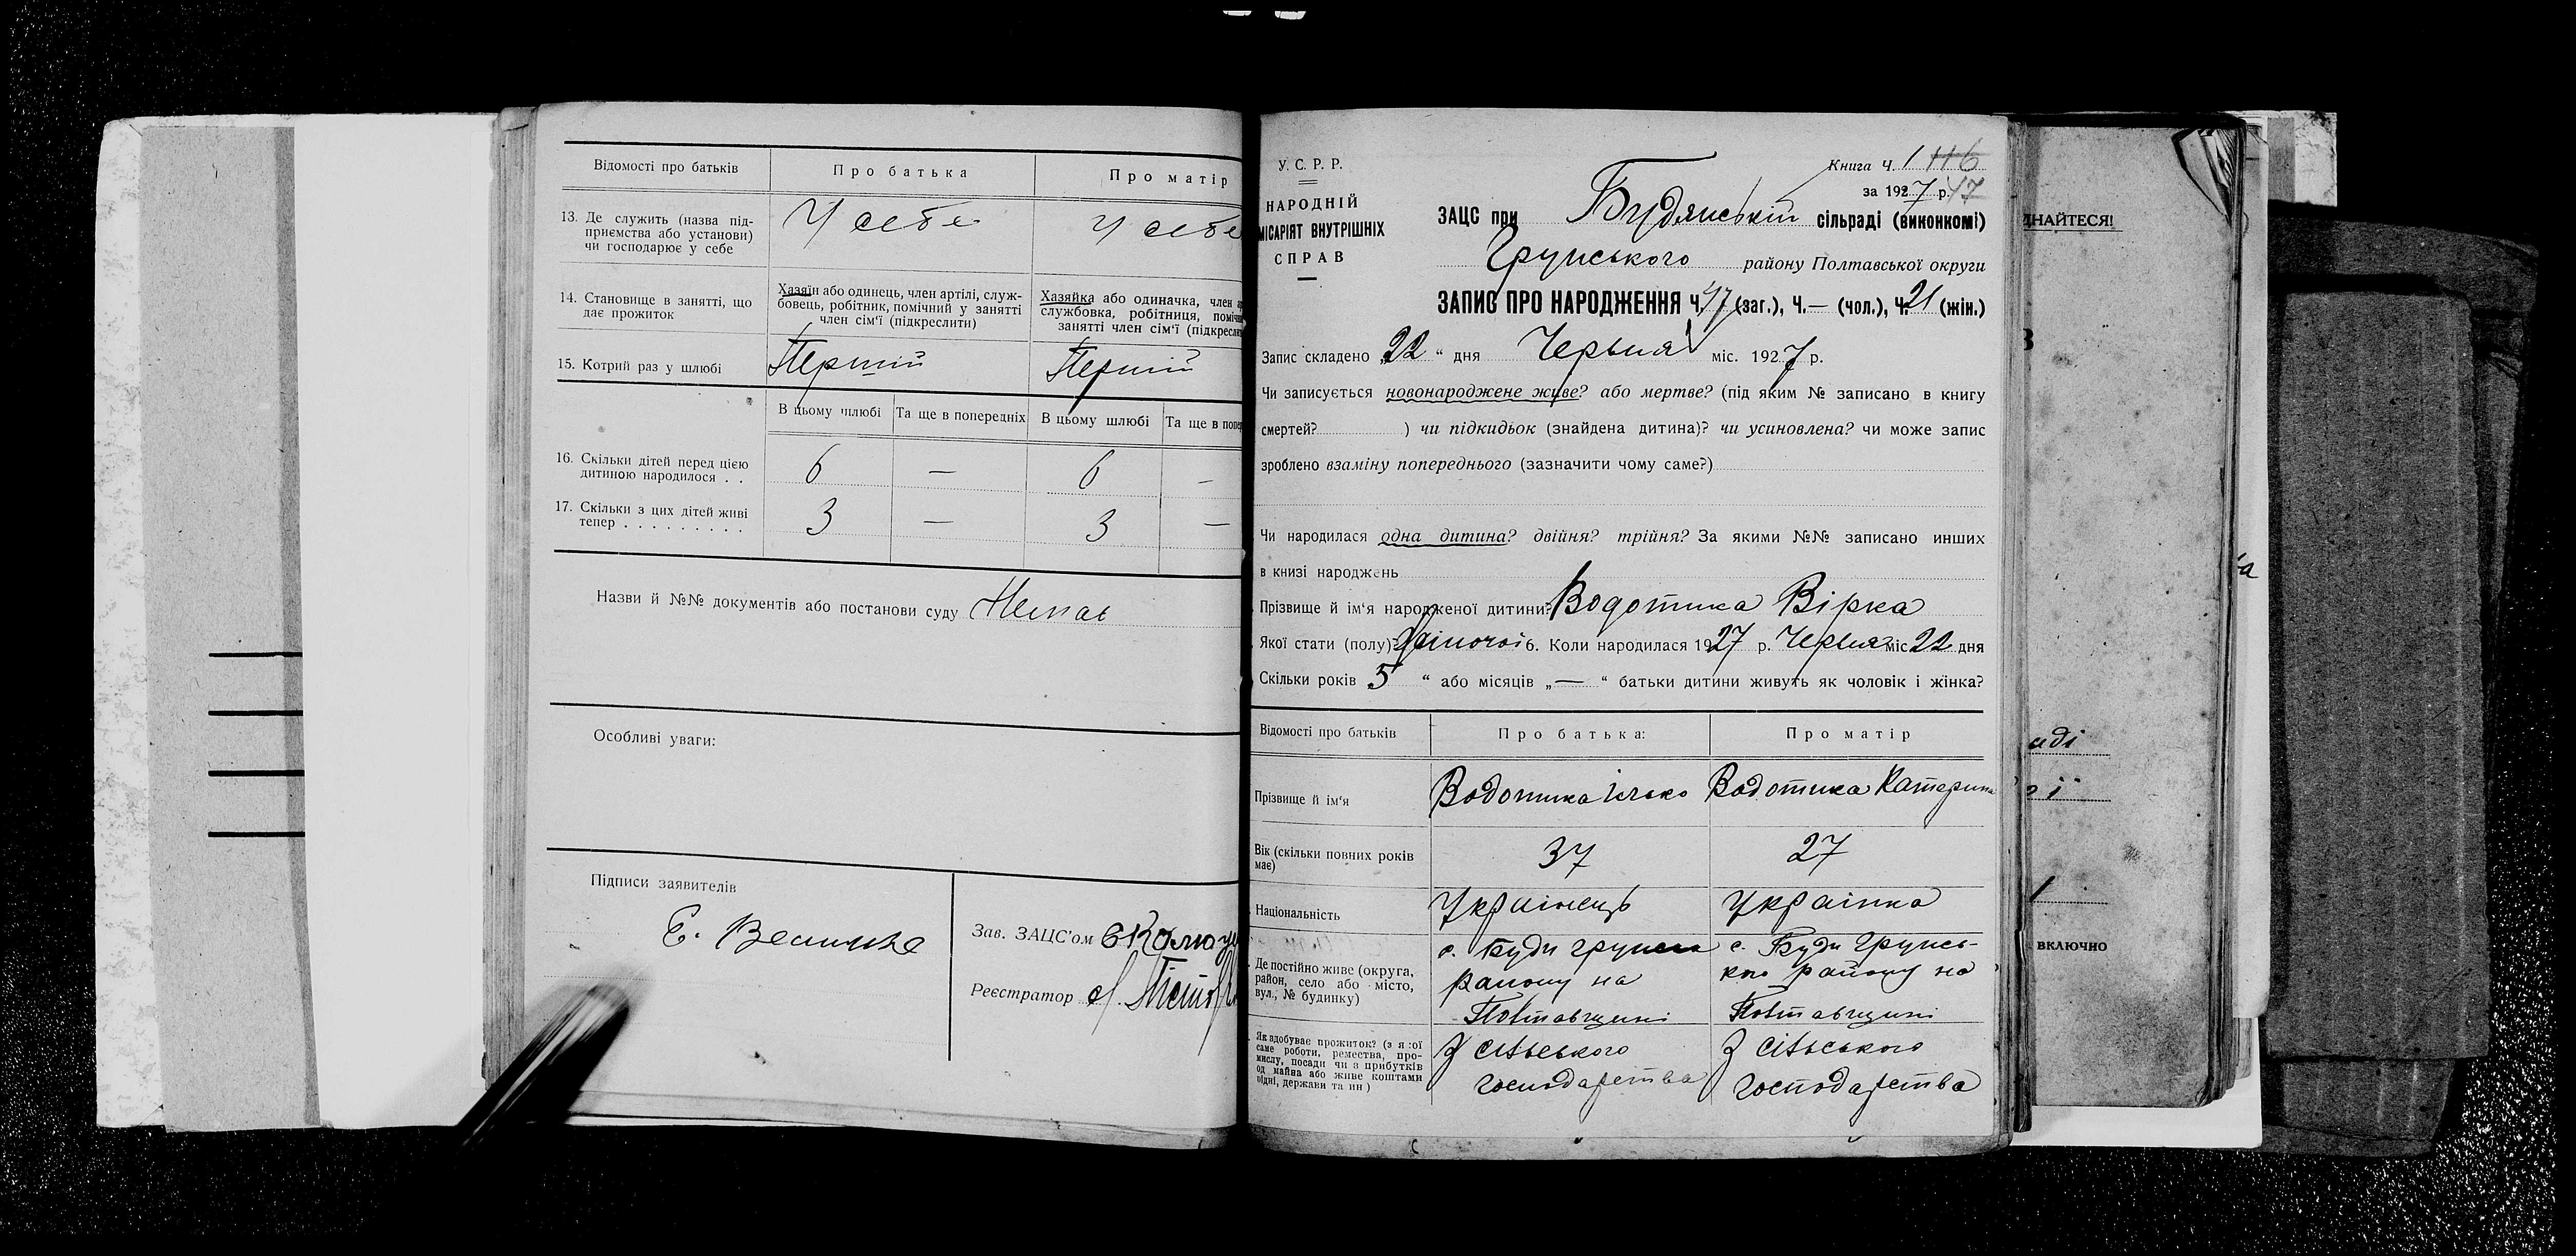 Відомості про батьків
Про батька
Про матір
13. Де служить (назва під-
приємства або установи)
чи господарює у себе
У себе
У себе
14. Становище в занятті, що
дає прожиток
Хазяїн або одинець, член артілі, служ-
бовець, робітник, помічний у занятті
член сім'ї (підкреслити)
Хазяйка або одиначка, член
службовка, робітниця,
занятті член сім'ї
15. Котрий раз у шлюбі
Перший
Перший
В цьому шлюбі
Та ще в попередніх
В цьому шлюбі
Та ще в
16. Скільки дітей перед цією
дитиною народилося . .
6 — 6 —
17. Скільки з цих дітей живі
тепер . . . . . . . . .
3 — 3 —
Назви й №№ документів або постанови суду Немає
Особливі уваги:
Підписи заявителів
Е. Величко
Зав. ЗАЦС'ом
Реєстратор
У.С.Р.Р.
НАРОДНІЙ
МІСАРІЯТ ВНУТРІШНІХ
СПРАВ
Книга Ч. 1 116
за 1927 р. 47
ЗАЦС при Будянській сільраді (виконкомі)
Грунського району Полтавської округи
ЗАПИС ПРО НАРОДЖЕННЯ Ч. 47 (заг.), Ч. — (чол.), Ч. 21 (жін.)
Запис складено „22“ дня Червня міс. 1927 р.
Чи записується новонароджене живе? або мертве? (під яким № записано в книгу
смертей? ) чи підкидьок (знайдена дитина)? чи усиновлена? чи може запис
зроблено взаміну попереднього (зазначити чому саме?)
Чи народилася одна дитина? двійня? трійня? За якими №№ записано инших
в книзі народжень
Прізвище й ім'я народженої дитини? Водотика Вірка
Якої стати (полу)? жіночої 6. Коли народилася 1927 р. Червня міс 22 дня
Скільки років 5 “ або місяців „—“ батьки дитини живуть як чоловік і жінка?
Відомості про батьків
Про батька:
Про матір
Прізвище й ім'я
Водотика Ілько
Водотика Катерина
Вік (скільки повних років
має)
37
27
Національність
Українець
Українка
Де постійно живе (округа,
район, село або місто,
вул., № будинку)
с. Буди
району на
Полтавщині
с. Буди Грунсь-
кого району на
Полтавщині
Як здобуває прожиток? (з я:ої
саме роботи, ремества, про-
мислу, посади чи з прибутків
од майна або живе коштами
рідні, держави та ин)
З сільського
господарства
З сільського
господарства
ДНАЙТЕСЯ!
В
аді
ї
1
ВКЛЮЧНО